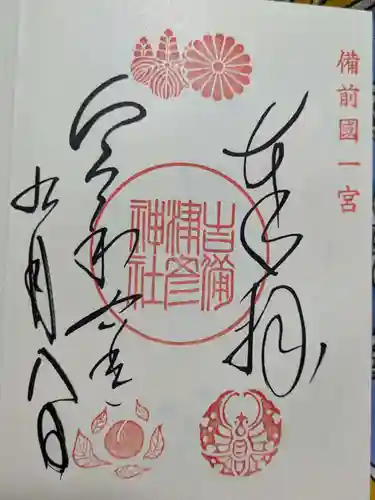 備前國一宮
奉拝
吉備
津彦
神社
令和六年
九月八日